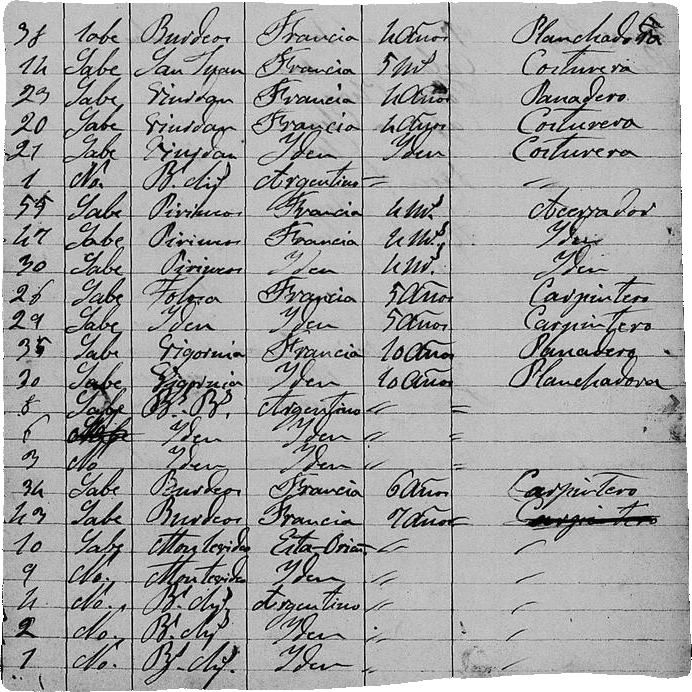 38 Sabe Burdeos Francia 4 Años Planchadora
14 Sabe San Juan Francia 5 Ms. Costurera
23 Sabe Francia 4 Años Panadero
20 Sabe Francia 4 Años Costurera
21 Sabe Yden Yden Costurera
1 No. Bs. Ays. Argentino "  "
55 Sabe Pirineos Francia 4 Ms. Acerrador
47 Sabe Pirineos Francia 4 Ms. Yden
30 Sabe Pirineos Yden 4 Ms. Yden
26 Sabe Tolosa Francia 5 Años Carpintero
29 Sabe Yden Yden 5 Años Carpintero
35 Sabe Francia 10 Años Panadero
30 Sabe Yden 10 Años Planchadora
8 Sabe Argentino " "
6 Yden Yden " "
3 No Yden Yden " "
34 Sabe Burdeos Francia 6 Años Carpintero
43 Sabe Burdeos Francia 7 Años Carpintero
10 Sabe Montevideo Esta-Orien. " "
9 No. Montevideo Yden " "
4 No. Bs. Ays. Argentino " "
2 No. Bs. Ays. Yden " "
1 No. Bs. Ays. Yden " "